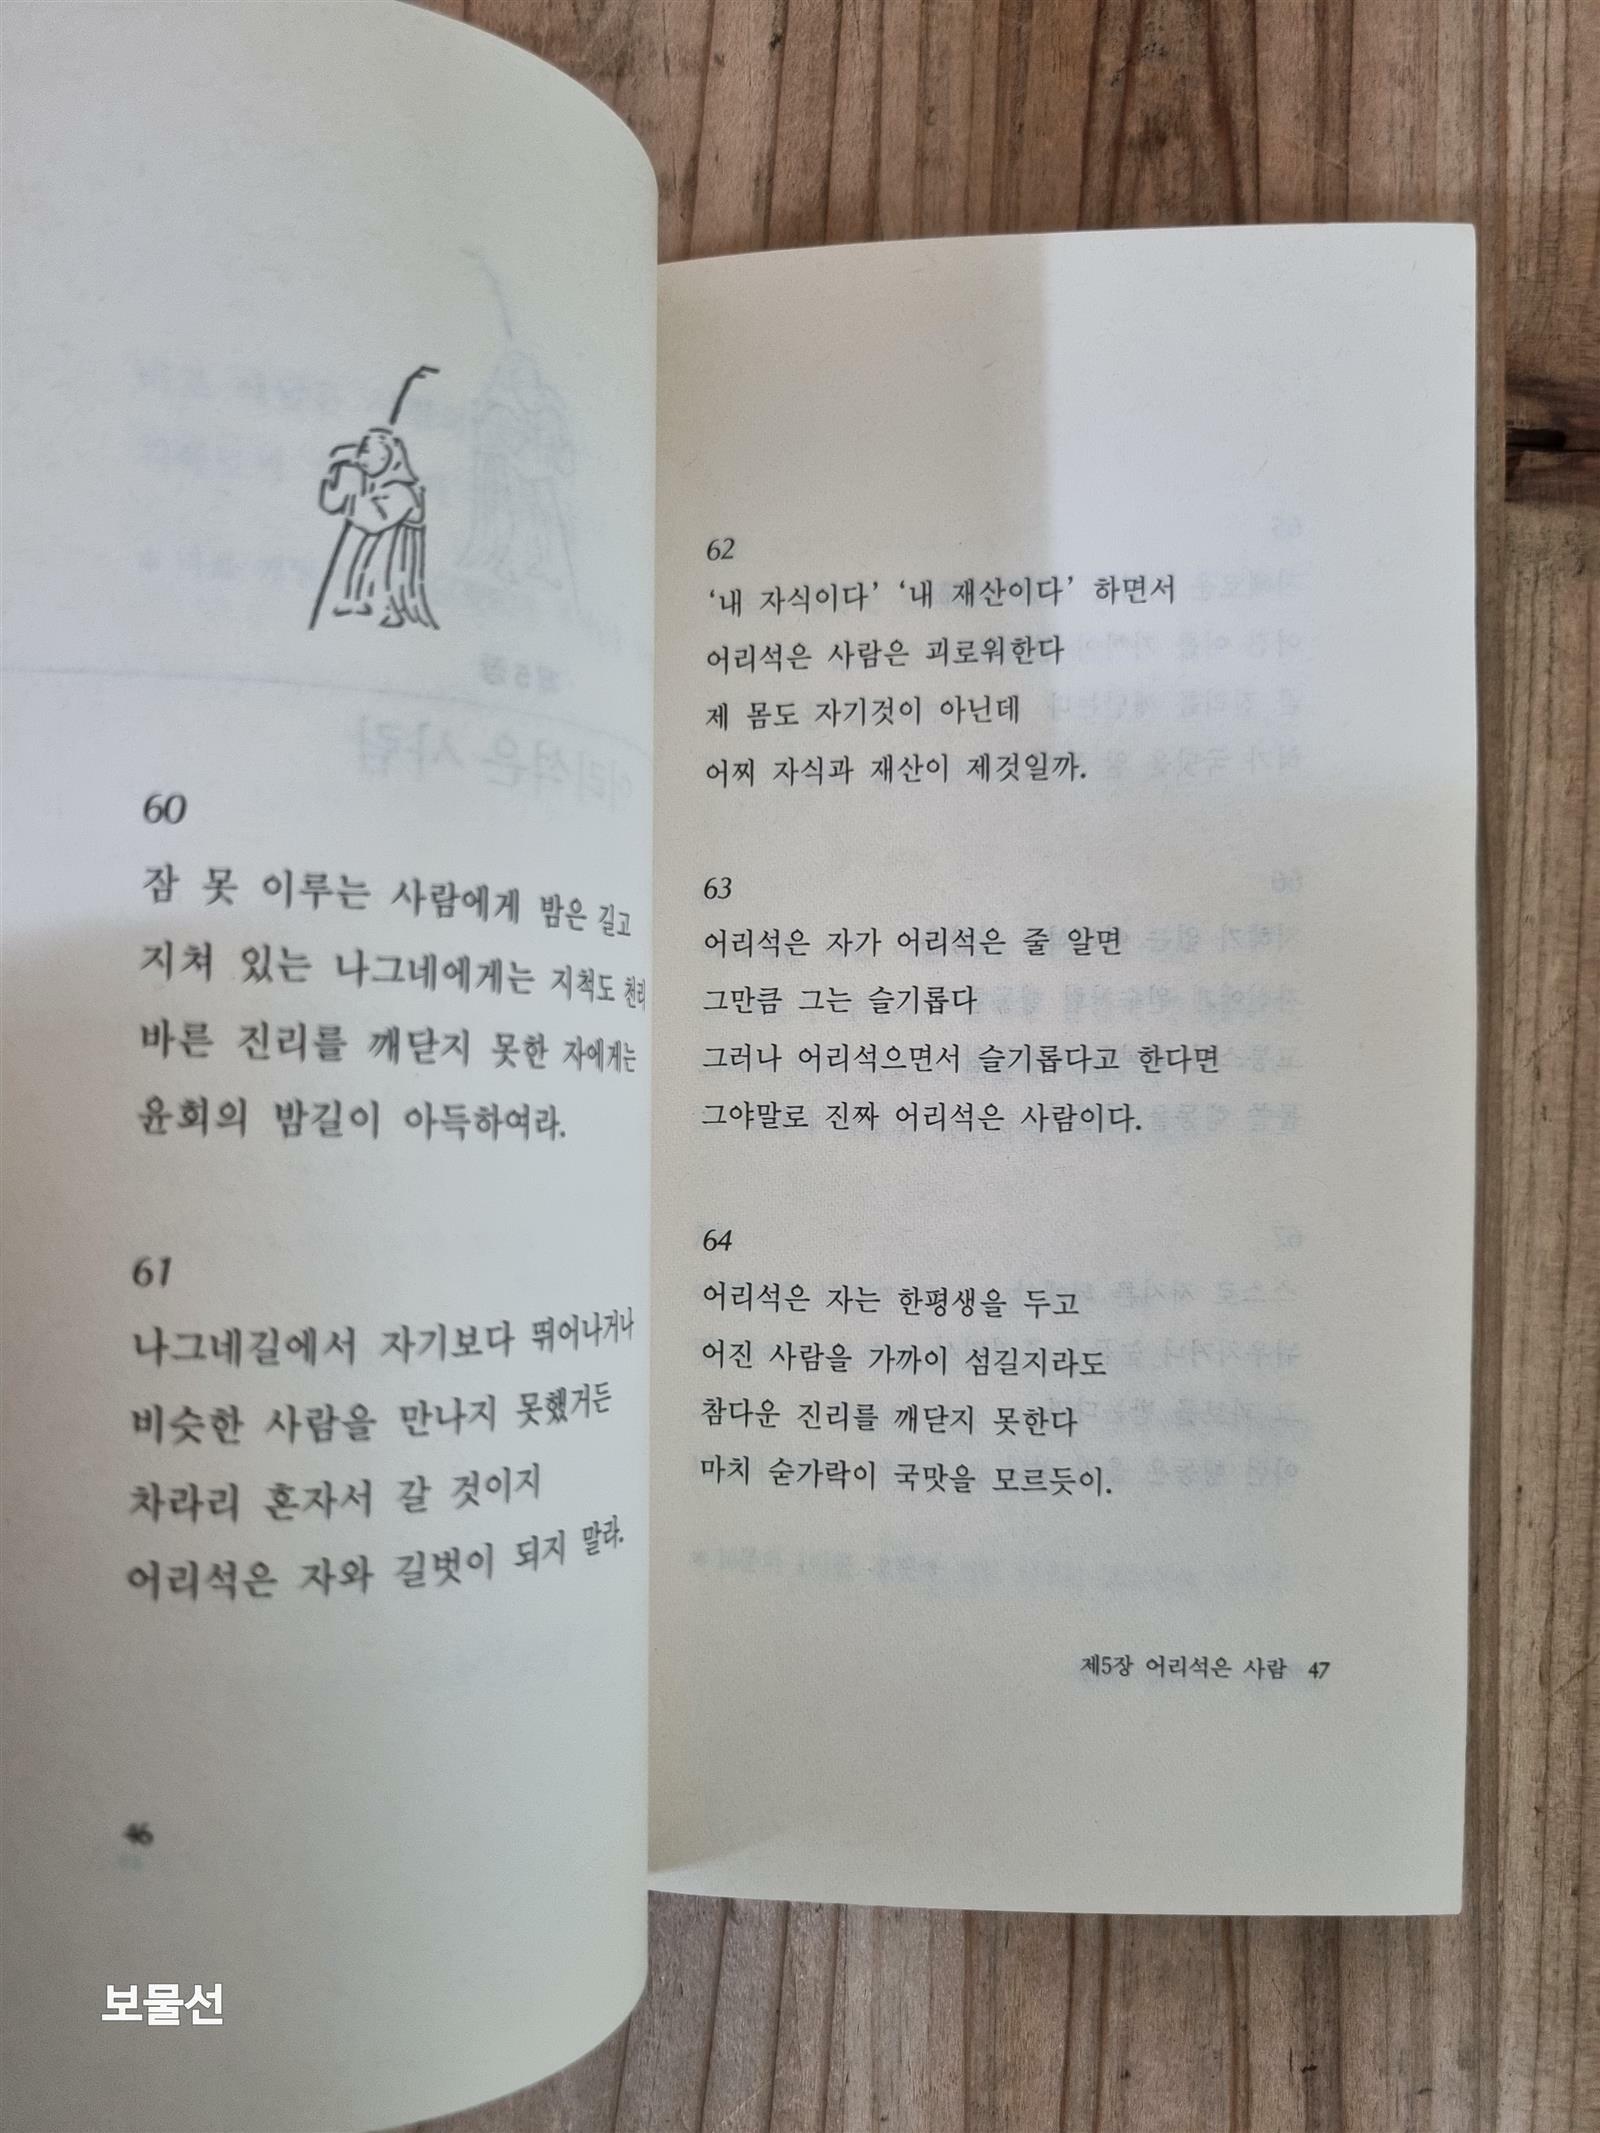 60
잠 못 이루는 사람에게 밤은 길고
지쳐 있는 나그네에게는 지척도 천리
바른 진리를 깨닫지 못한 자에게는
윤회의 밤길이 아득하여라.
61
나그네길에서 자기보다 뛰어나거나
비슷한 사람을 만나지 못했거든
차라리 혼자서 갈 것이지
어리석은 자와 길벗이 되지 말라.
46
62
‘내 자식이다’ ‘내 재산이다’ 하면서
어리석은 사람은 괴로워한다
제 몸도 자기것이 아닌데
어찌 자식과 재산이 제것일까.
63
어리석은 자가 어리석은 줄 알면
그만큼 그는 슬기롭다
그러나 어리석으면서 슬기롭다고 한다면
그야말로 진짜 어리석은 사람이다.
64
어리석은 자는 한평생을 두고
어진 사람을 가까이 섬길지라도
참다운 진리를 깨닫지 못한다
마치 숟가락이 국맛을 모르듯이.
제5장 어리석은 사람 47
보물선